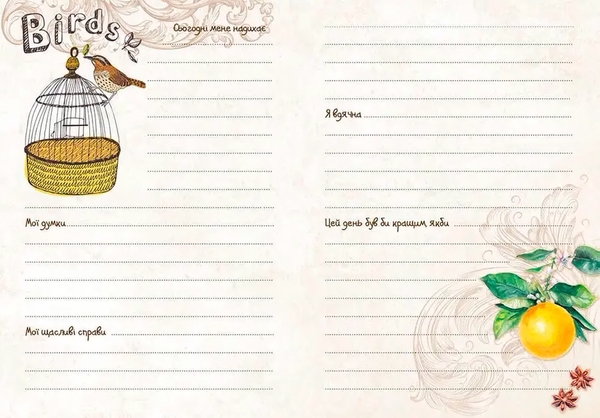 Birds
Сьогодні мене надихає
Мої думки
Мої щасливі справи
Я вдячна
Цей день був би кращим, якби